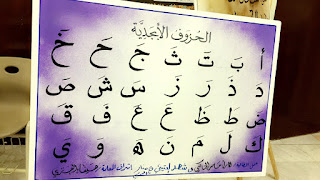 الحروف الأبجدية
أَ بَ تَ ثَ جَ حَ خَ
دَ ذَ رَ زَ سَ شَ صَ
ضَ طَ ظَ عَ غَ فَ قَ
كَ لَ مَ نَ هَ وَ يَ